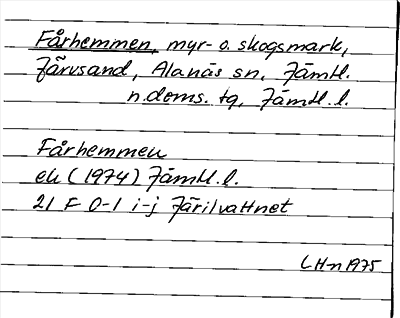 Fårhemmen, myr- o. skogsmark,
Järvsand, Alanäs sn, Jämtl.
n. doms. tg, Jämtl. l.
Fårhemmen
ek (1974) Jämtl. l.
21 F 0-1 i-j Järilvattnet
LHn 1975